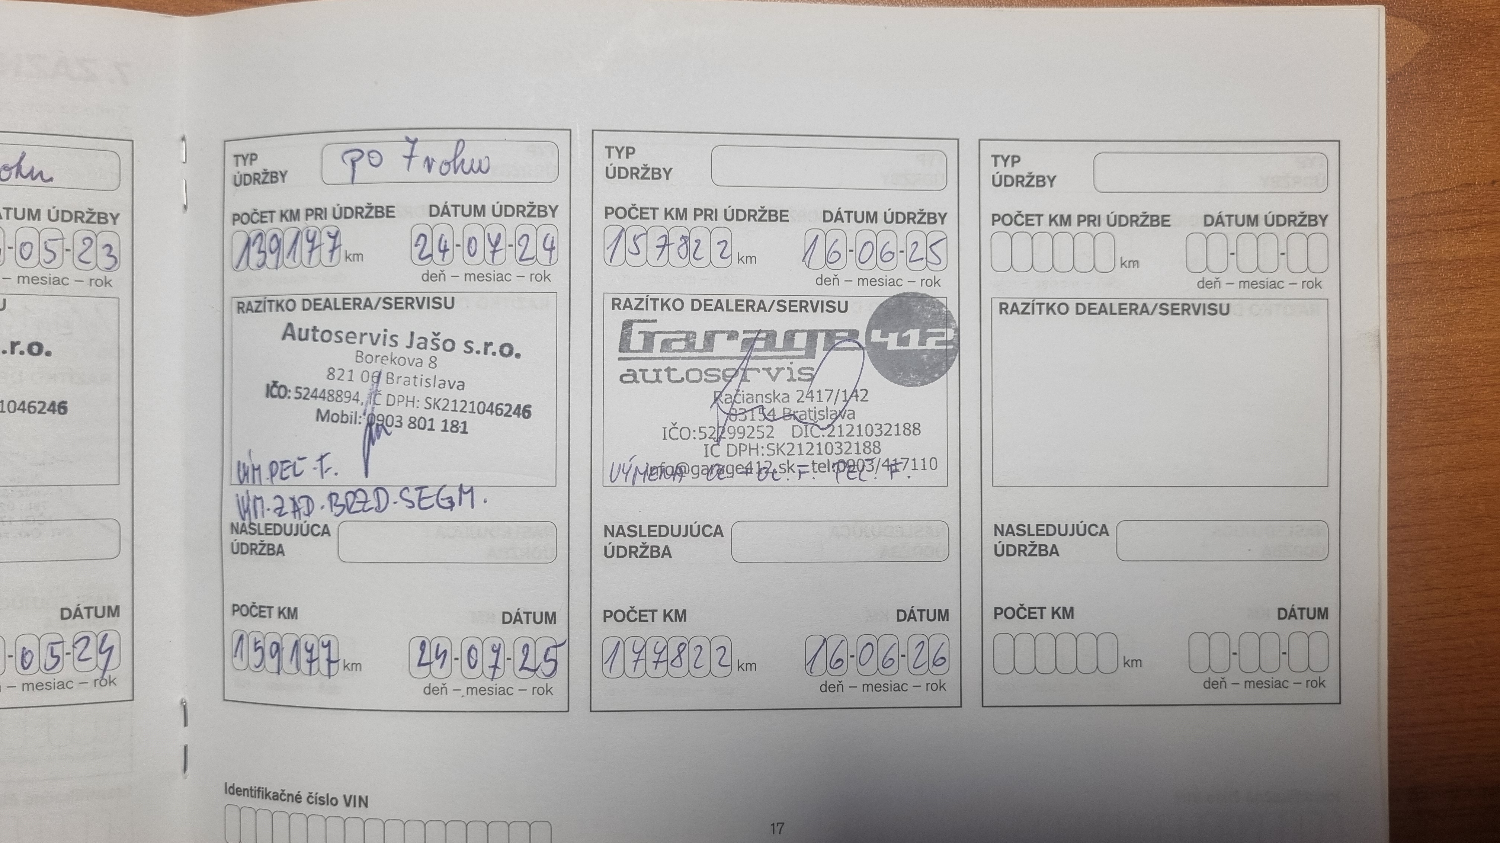 ohu
ATUM ÚDRŽBY
05-23
– mesiac – rok
.r.o.
1046246
DÁTUM
-05-24
– mesiac – rok
TYP ÚDRŽBY
po 7 roku
POČET KM PRI ÚDRŽBE DÁTUM ÚDRŽBY
139177 km 24-07-24
deň – mesiac – rok
RAZÍTKO DEALERA/SERVISU
Autoservis Jašo s.r.o.
Borekova 8
821 06 Bratislava
IČO: 52448894, IČ DPH: SK2121046246
Mobil: 0903 801 181
VÝM. PEĽ. F.
VÝM. ZAD. BRZD. SEGM.
NASLEDUJÚCA
ÚDRŽBA
POČET KM DÁTUM
159177 km 24-07-25
deň – mesiac – rok
TYP
ÚDRŽBY
POČET KM PRI ÚDRŽBE DÁTUM ÚDRŽBY
157822 km 16-06-25
deň – mesiac – rok
RAZÍTKO DEALERA/SERVISU
Garage 412
autoservis
Račianska 2417/142
83154 Bratislava
IČO:52299252 DIČ:2121032188
IC DPH:SK2121032188
info@garage412.sk tel:0903/417110
VÝMENA OL + OL. F. PEĽ. F.
NASLEDUJÚCA
ÚDRŽBA
POČET KM DÁTUM
177822 km 16-06-26
deň – mesiac – rok
TYP
ÚDRŽBY
POČET KM PRI ÚDRŽBE DÁTUM ÚDRŽBY
km
deň – mesiac – rok
RAZÍTKO DEALERA/SERVISU
NASLEDUJÚCA
ÚDRŽBA
POČET KM DÁTUM
km
deň – mesiac – rok
Identifikačné číslo VIN
17